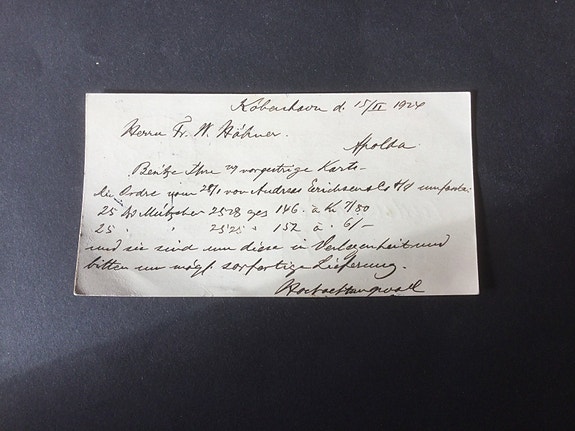 København d. 15/II 1924
Herrn Fr. W. Höhner.
Apolda.
Besitze Ihre vorgestrige Karte
die Ordre vom 28/1 von Andreas Erichsen & Co
25 Mützcher 2528 ges 146 à Kr 7/50
25 " " 2525 " 152 à " 6/-
und sie sind um diese in Verlegenheit und
bitten um mögl. sorfortige Lieferung.
Hochachtungsvoll